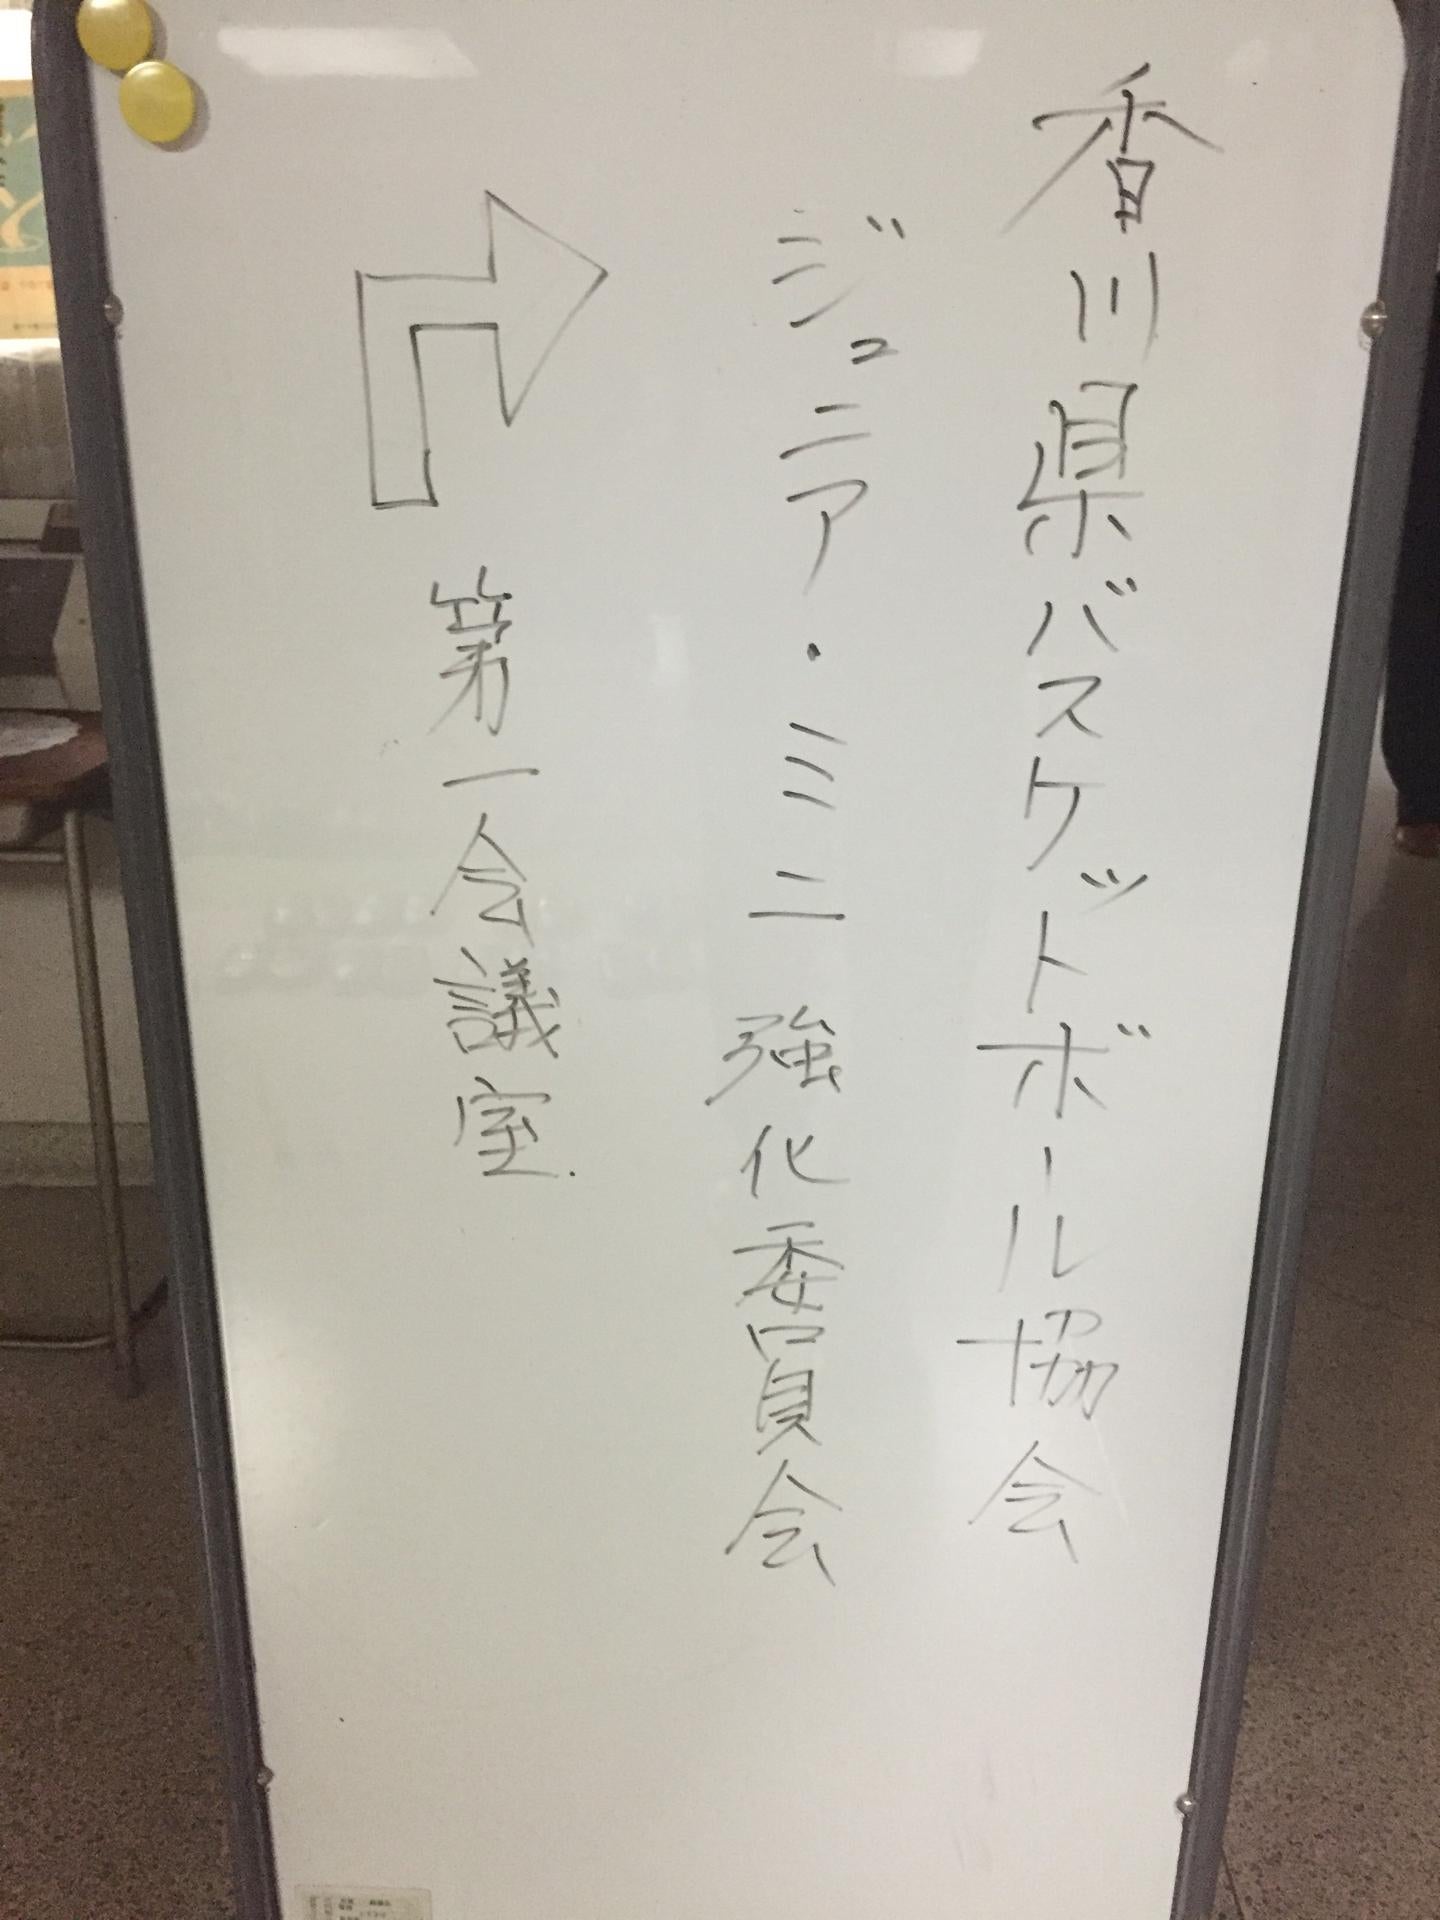 香川県バスケットボール協会
ジュニア・ミニ強化委員会
第一会議室